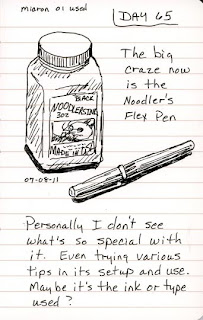 micron 01 used
DAY 65
The big
craze now
is the
Noodler's
Flex Pen
BLACK
NOODLER'S INK
3oz
MADE IN USA
07-08-11
Personally I don't see
what's so special with
it. Even trying various
tips in its setup and use.
Maybe it's the ink or type
used?